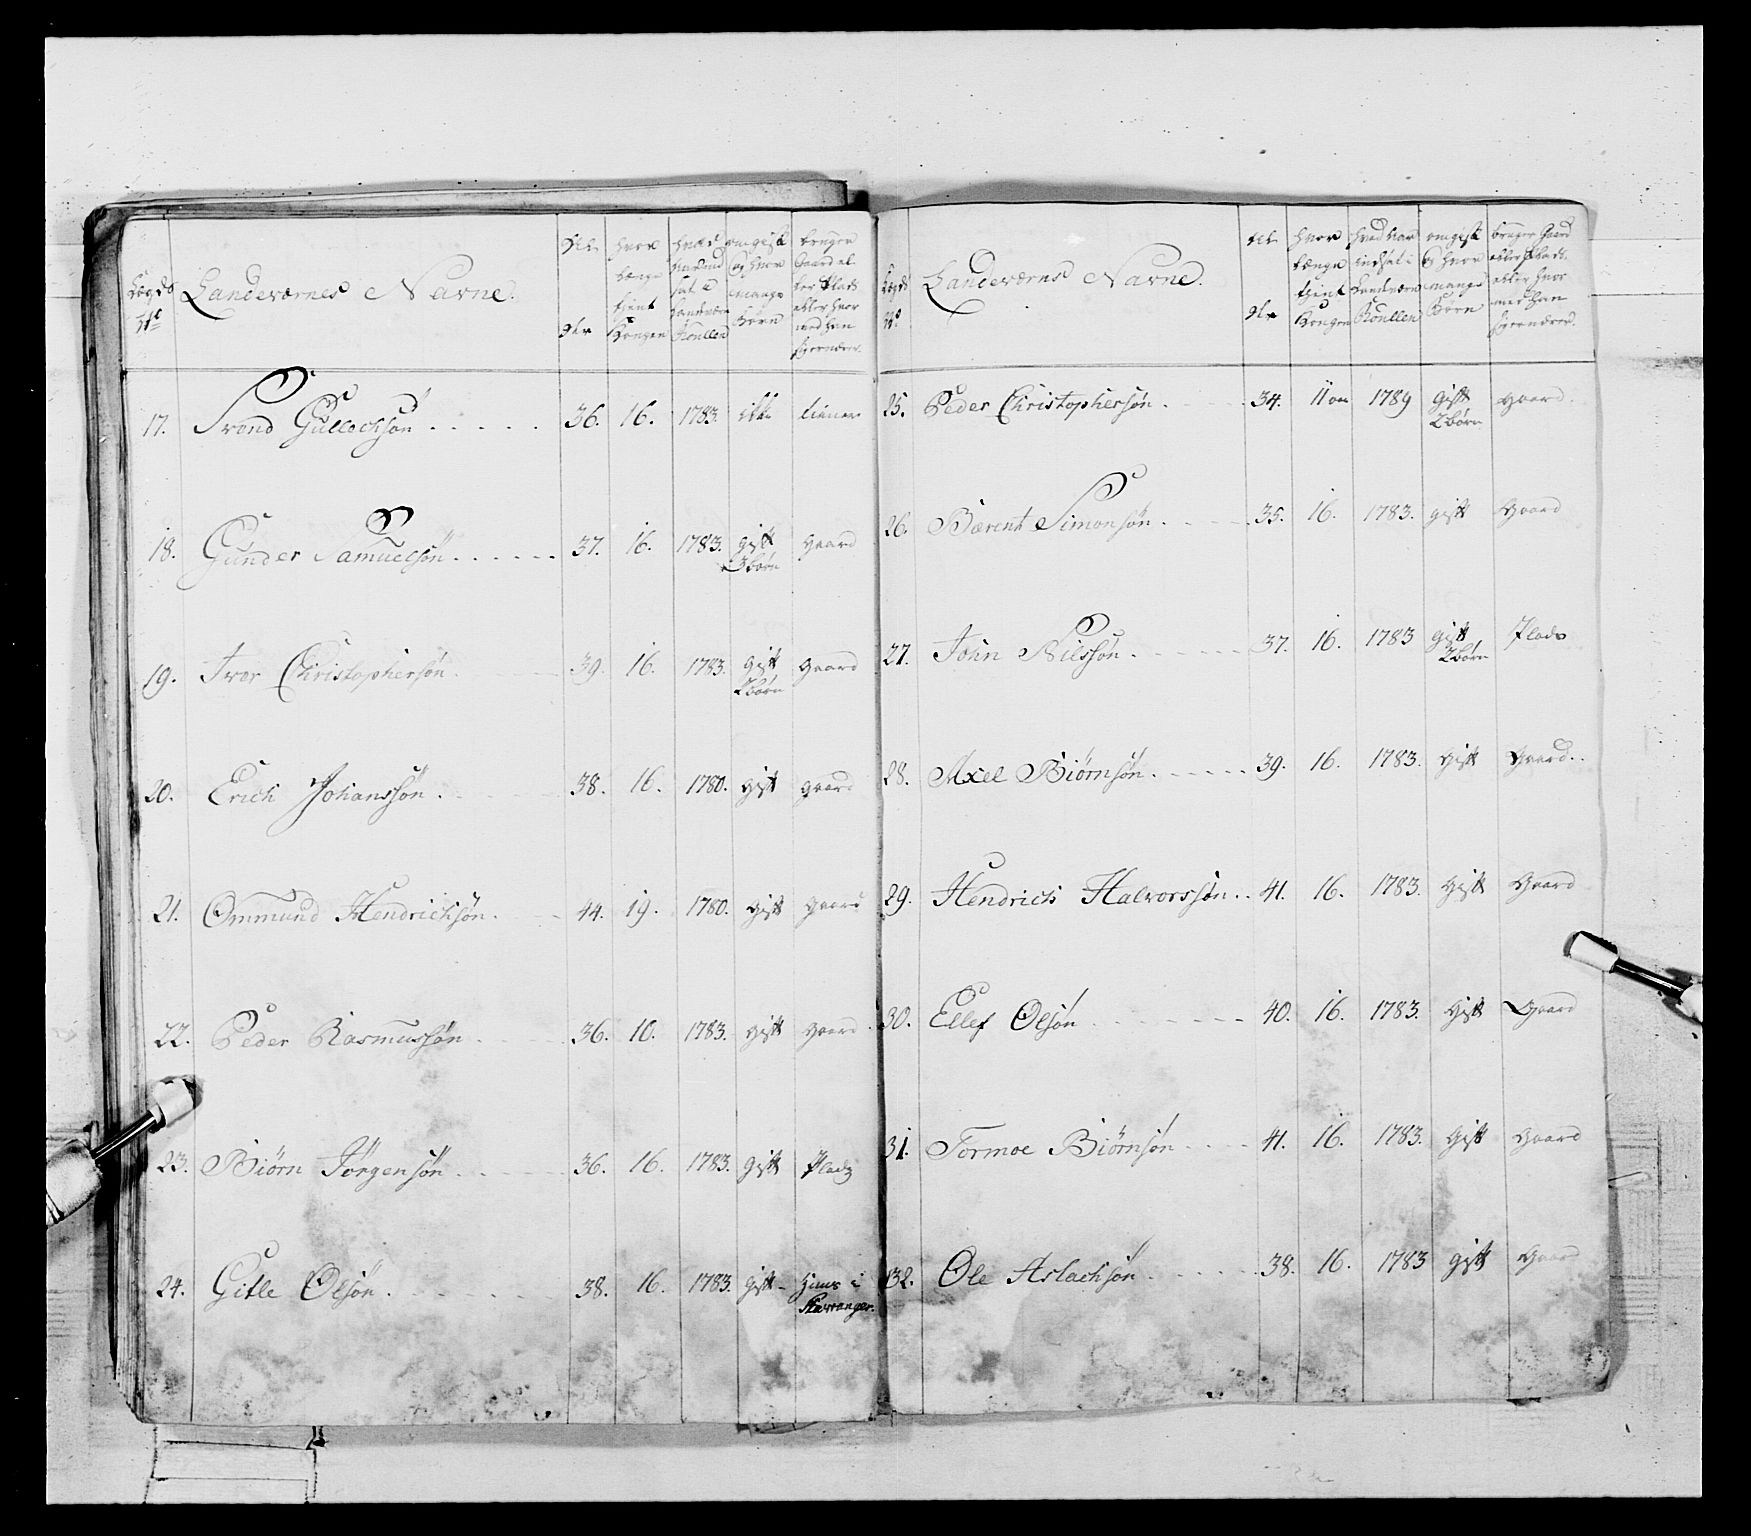 Lægds No
Landeværnes Navne.
Alder
hvor længe tient Kongen
hvad Aar indsat i Landeværn Roullen
om gift og hvor mange Børn
bruger Gaard eller Plads eller hvor med han sig ernærer.
17. Trond Gullochsøn 36. 16. 1783. ikke tiener
18. Gunder Samuelsøn 37. 16. 1783. gift 3 børn gaard
19. Iver Christophersøn 39. 16. 1783. gift 2 børn gaard
20. Erich Johanssøn 38. 16. 1780. gift gaard
21. Ommund Hendrichsøn 44. 19. 1780. gift gaard
22. Peder Rasmussøn 36. 10. 1783. gift gaard
23. Biørn Jørgensøn 36. 16. 1783. gift Plads
24. Gitle Olsøn 38. 16. 1783. gift Huus i Stavanger.
Lægds No
Landeværns Navne.
Alder
hvor længe tient Kongen
hvad Aar indsat i Landeværn Roullen
om gift og hvor mange Børn
bruger Gaard eller Plads, eller hvor med han sig ernærer.
25. Peder Christophersøn 34. 11 1789 gift 2 børn gaard.
26. Bærent Simonsøn 35. 16. 1783. gift gaard
27. John Nilssøn 37. 16. 1783 gift 2 børn Plads
28. Axel Biørnsøn 39. 16. 1783. gift Gaard.
29. Hendrich Halvorssøn 41. 16. 1783. gift Gaard
30. Ellef Olsøn 40. 16. 1783. gift Gaard
31. Tormoe Biørnsøn 41. 16. 1783. gift gaard
32. Ole Aslachsøn 38. 16. 1783 gift Gaard